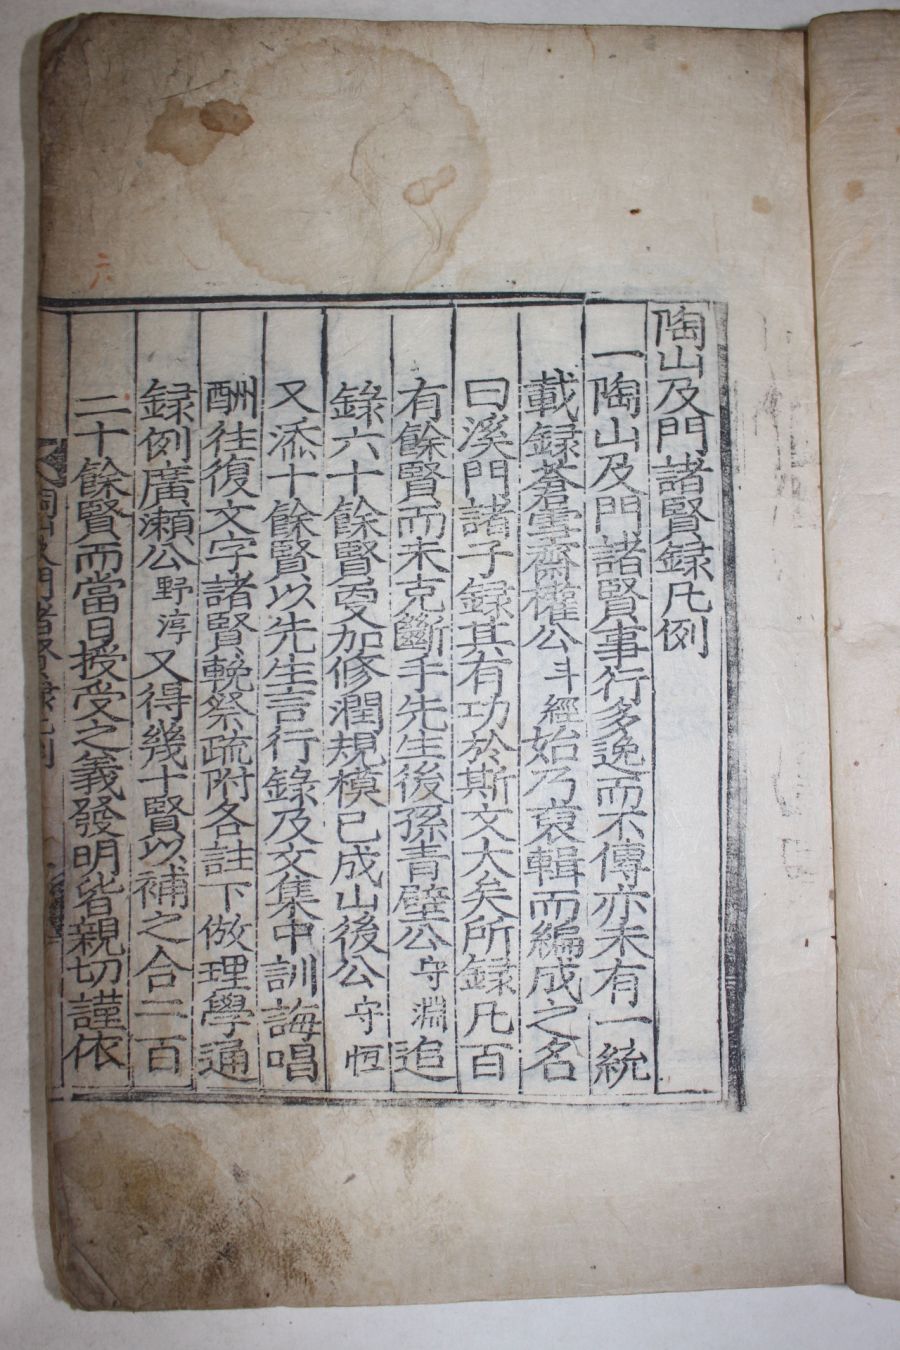 陶山及門諸賢錄凡例
一陶山及門諸賢事行多逸而不傳亦未有一統
載録蒼雪齋權公斗經始乃裒輯而編成之名
曰溪門諸子錄其有功於斯文大矣所録凡百
有餘賢而未克斷手先生後孫青壁公守淵追
錄六十餘賢更加修潤規模已成山後公守恒
又添十餘賢以先生言行錄及文集中訓誨唱
酬往復文字諸賢輓祭疏附各註下倣理學通
録例廣瀬公野淳又得幾十賢以補之合二百
二十餘賢而當日授受之義發明皆親切謹依